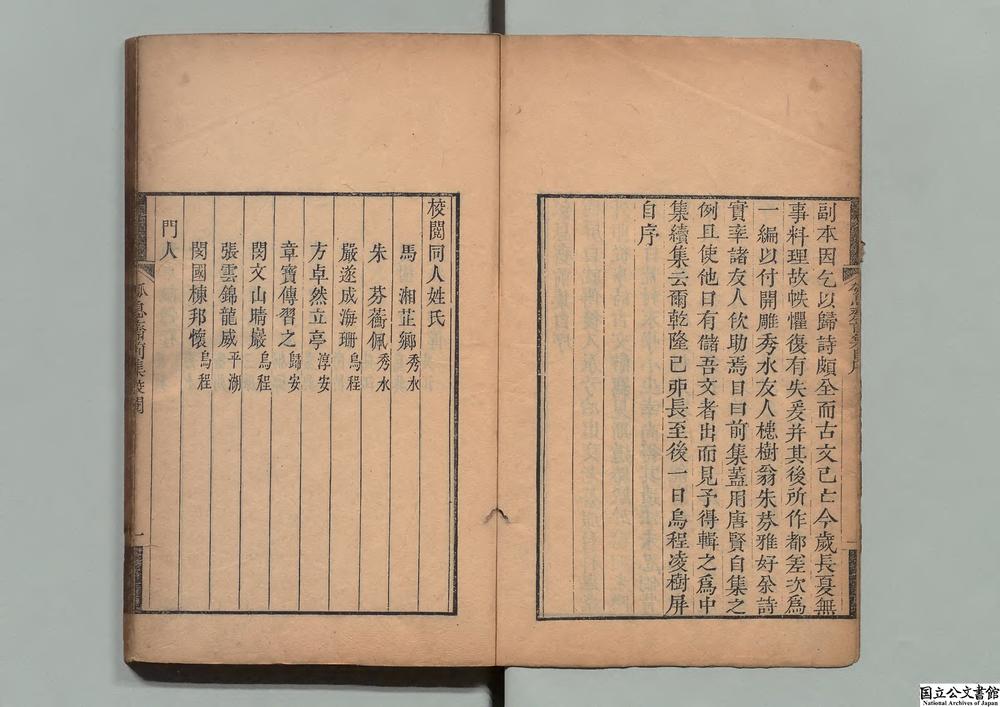 副本因乞以歸詩頗全而古文已亡今歲長夏無
事料理故帙懼復有失爰并其後所作都差次爲
一編以付開雕秀水友人樗樹翁朱芬雅好余詩
實率諸友人佽助焉目曰前集蓋用唐賢自集之
例且使他日有儲吾文者出而見予得輯之爲中
集續集云爾乾隆己卯長至後一日烏程凌樹屏
自序
校閲同人姓氏
馬　湘芷鄉秀水
朱　芬蘅佩秀水
嚴遂成海珊烏程
方卓然立亭淳安
章寶傳習之歸安
閔文山晴巖烏程
張雲錦龍威平湖
閔國棟邦懷烏程
門人
瓠息齋前集校閲
一
国立公文書館
National Archives of Japan